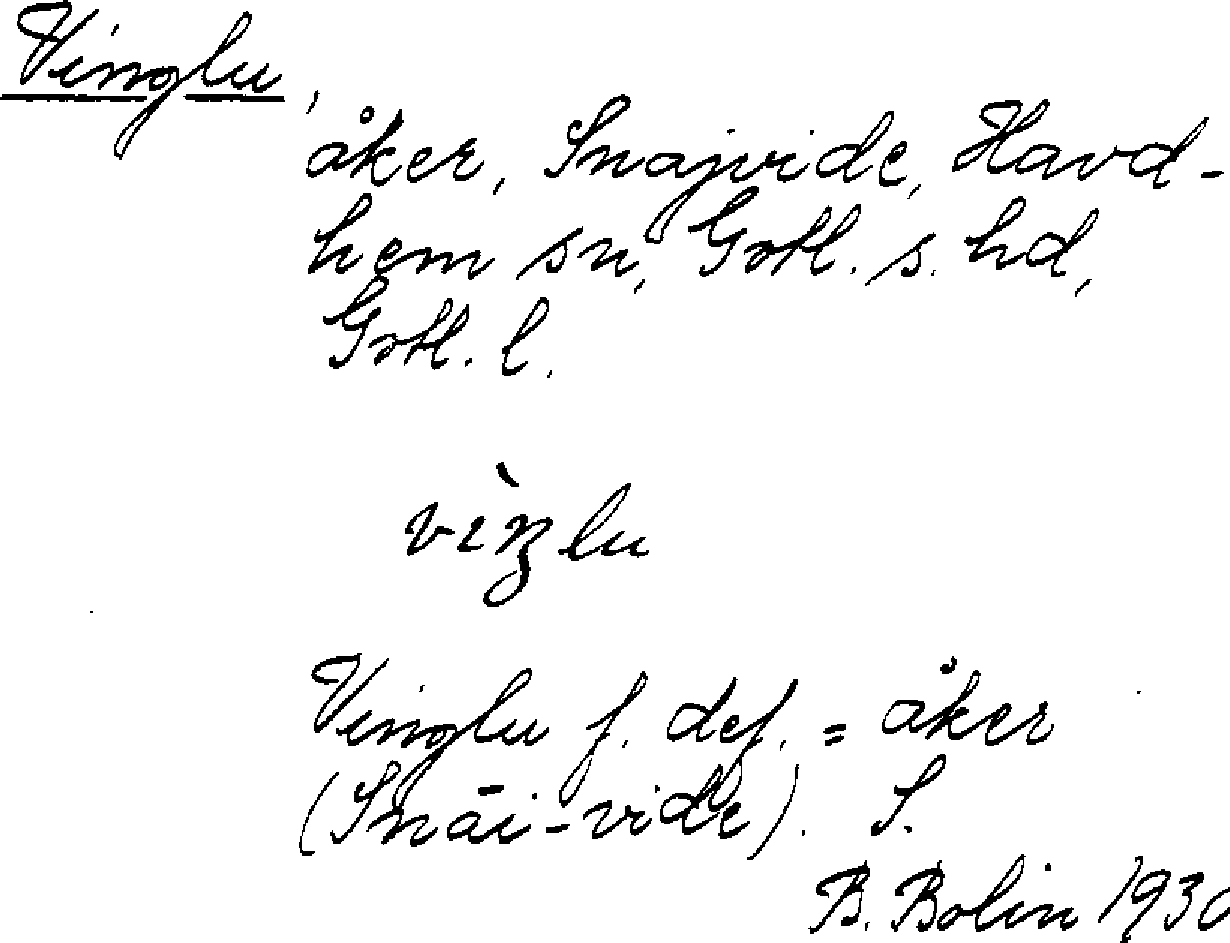 Vinglu,
åker, Snajvide, Havd-
hem sn, Gotl. s. hd,
Gotl. l.
vìŋlu
Vinglu f. def. = åker
(Snāi-vide). S.
B. Bolin 1930